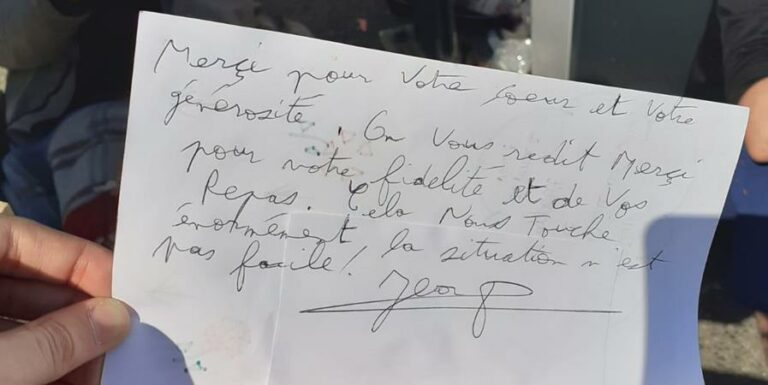 Merçi pour Votre Coeur et Votre
générosité. On Vous redit Merçi
pour votre fidélité et de Vos
Repas. Çela Nous Touche
énormément la situation n'est
pas facile!